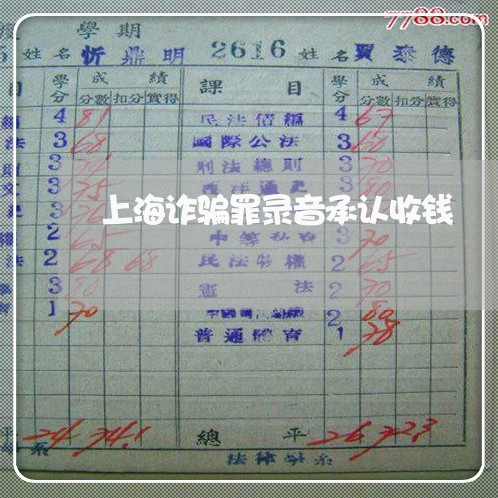 7788.com
學期
姓名 忻鼎明 2616 姓名 賈泰德
目 學分 成績 課目 學分 成績
分數 扣分 實得 分數 扣分 實得
4 81 民法債編 4 67
法 3 68 國際公法 3 60
3 刑法總則 3 70
文 3 75 西洋通史 3 80
上海诈骗罪录音承认收钱
2 65 中等 3 70
法 2 68 68 民法物權 2 65
3 80 憲法 2 70
育 1 70 2 80
普通體育 1 78
平 24 74.1 總平 26 72.3
系 法律學系